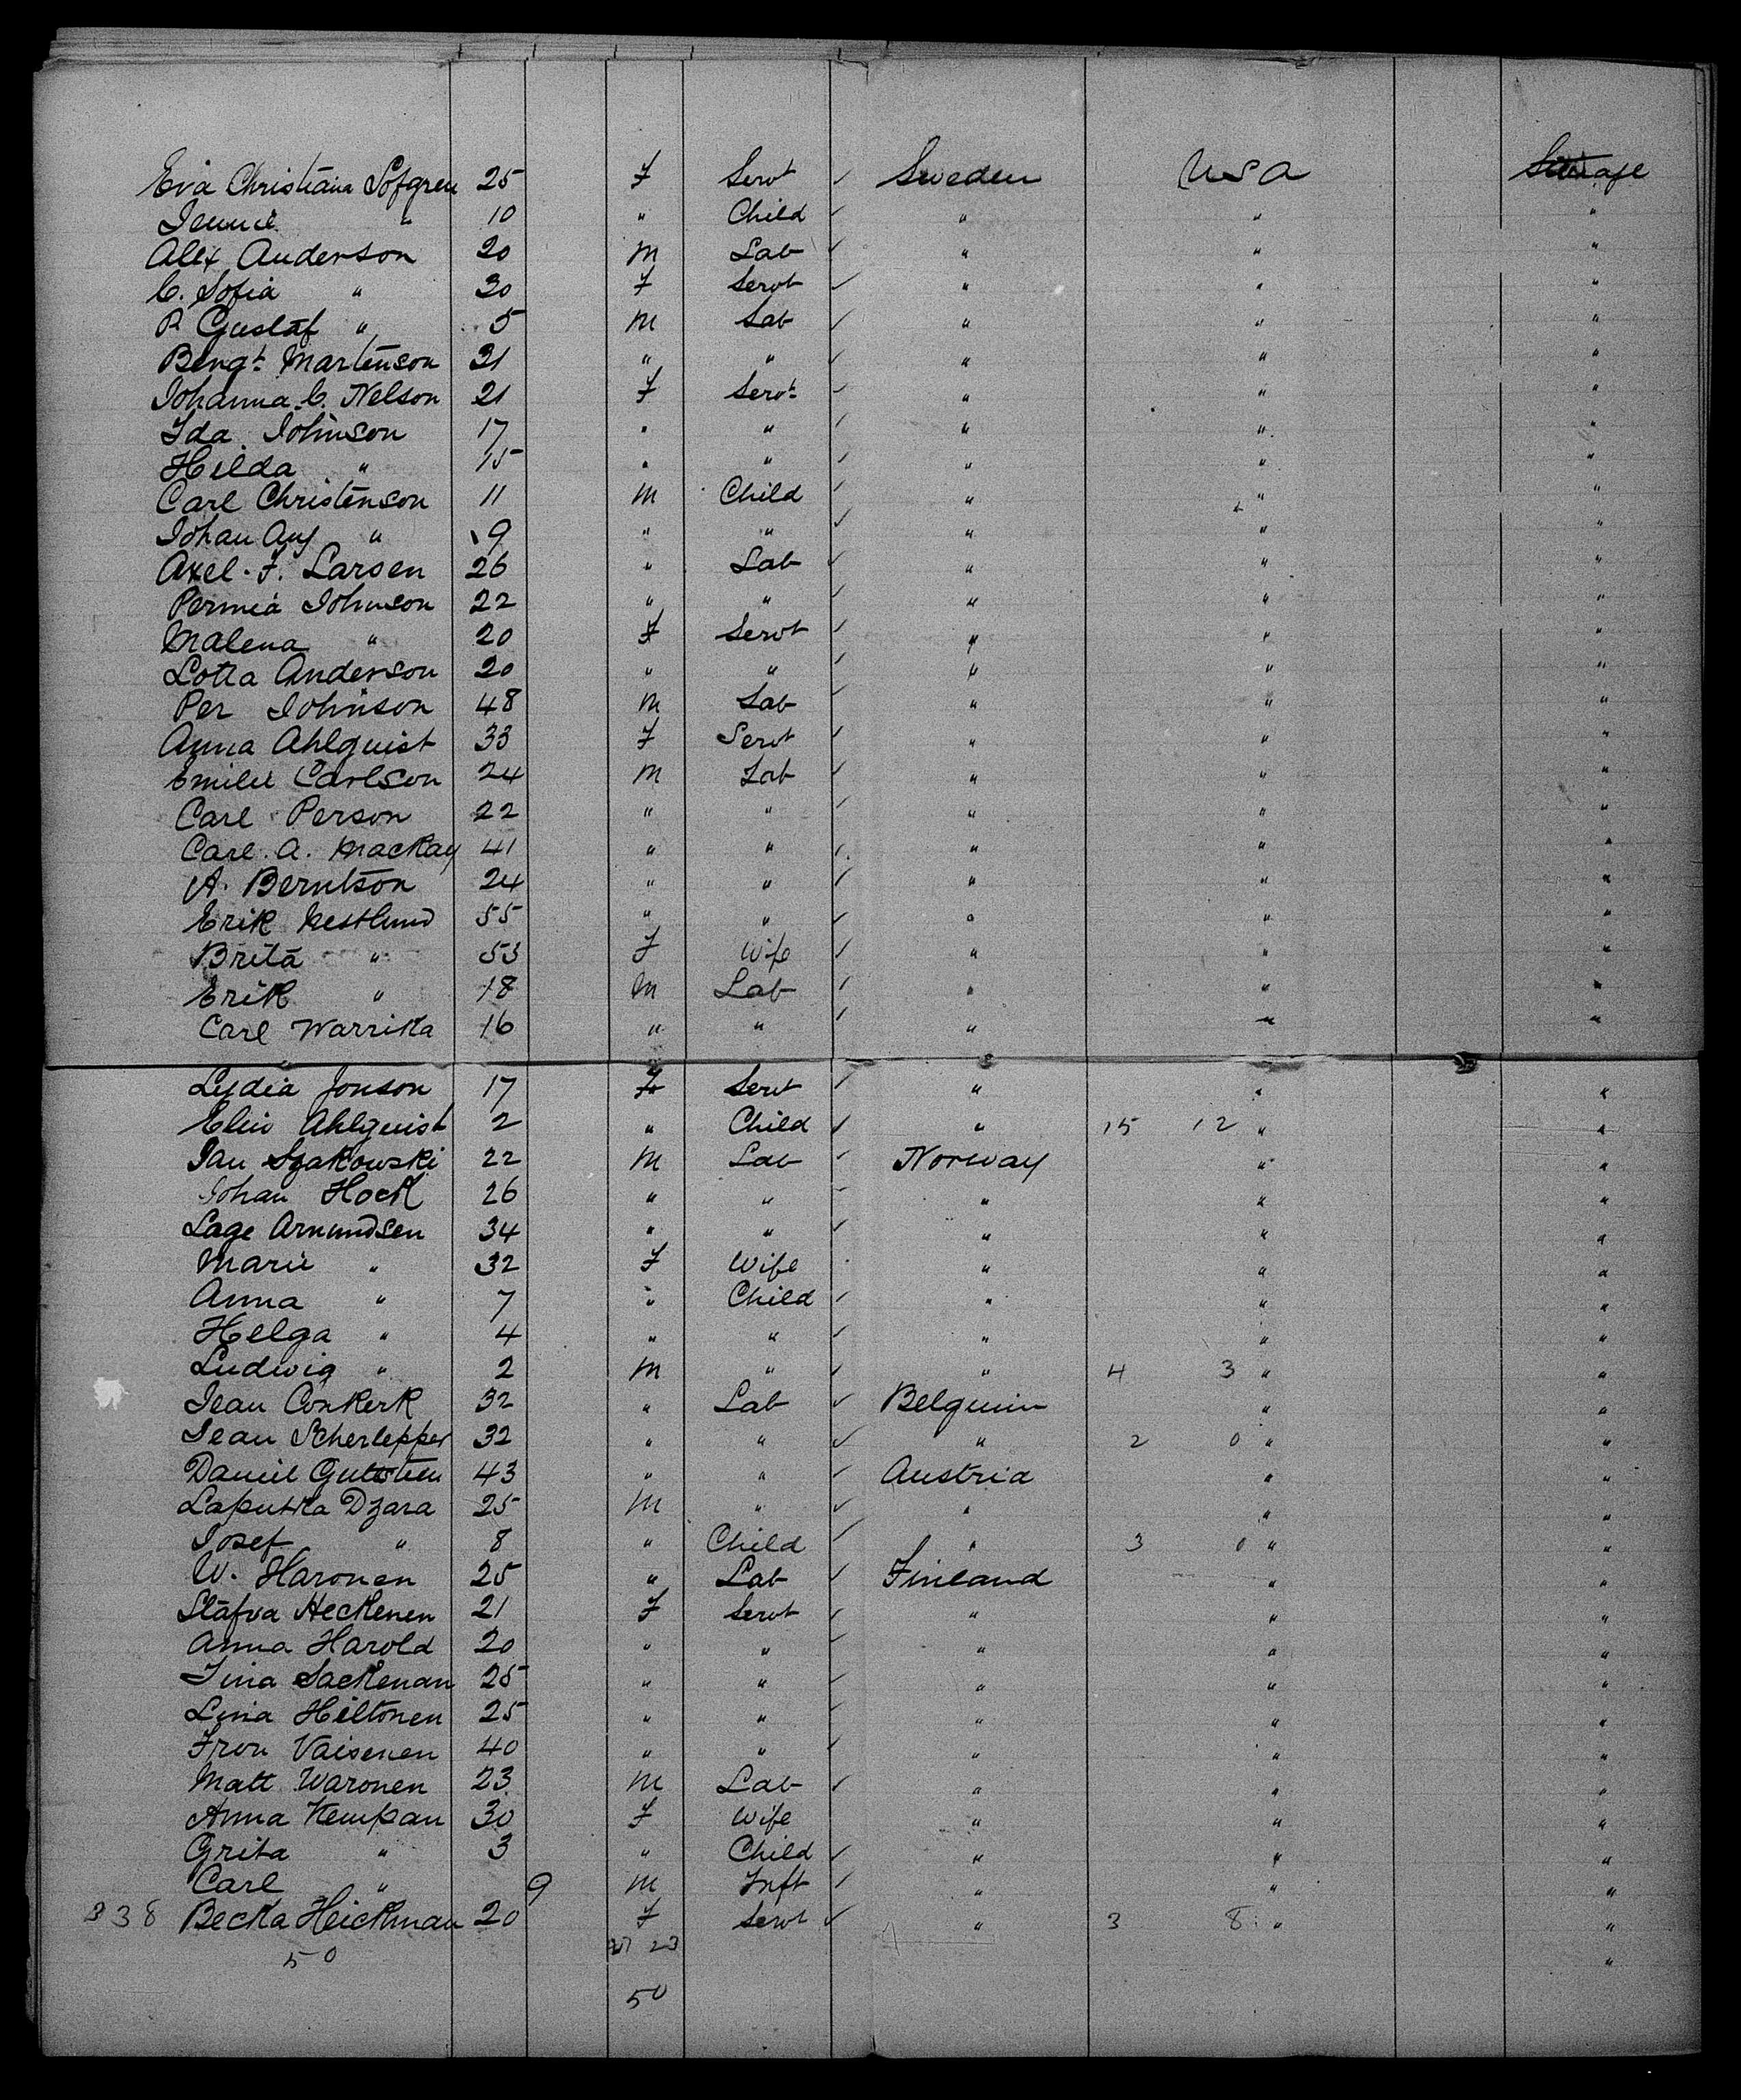 Eva Christiana Lofgren 25 F Servt ✓ Sweden USA Steerage
Jennie " 10 " Child ✓ " " "
Alex Anderson 20 M Lab ✓ " " "
C. Sofia " 30 F Servt ✓ " " "
P Gustaf " 5 M Lab ✓ " " "
Bengt Martenson 21 " " ✓ " " "
Johanna C. Nelson 21 F Servt ✓ " " "
Ida Johnson 17 " " ✓ " " "
Hilda " 15 " " ✓ " " "
Carl Christenson 11 M Child ✓ " " "
Johan Aug " 9 " " ✓ " " "
Axel F. Larsen 26 " Lab ✓ " " "
Pernia Johnson 22 " " ✓ " " "
Malena " 20 F Servt ✓ " " "
Lotta Anderson 20 " " ✓ " " "
Per Johnson 48 M Lab ✓ " " "
Anna Ahlquist 33 F Servt ✓ " " "
Emilie Carlson 24 M Lab ✓ " " "
Carl Person 22 " " ✓ " " "
Carl A. Mackay 41 " " ✓ " " "
A. Berntson 24 " " ✓ " " "
Erik Westlund 55 " " ✓ " " "
Brita " 53 F Wife ✓ " " "
Erik " 18 M Lab ✓ " " "
Carl Warrika 16 " " ✓ " " "
Lydia Jonson 17 F Servt ✓ " " "
Elin Ahlquist 2 " Child ✓ " 15 12 " "
Jan Szakowski 22 M Lab ✓ Norway " "
Johan Hock 26 " " ✓ " " "
Lage Amundsen 34 " " ✓ " " "
Marie " 32 F Wife " " "
Anna " 7 " Child ✓ " " "
Helga " 4 " " ✓ " " "
Ludwig " 2 M " ✓ " 4 3 " "
Jean Conkerk 32 " Lab ✓ Belguim " "
Jean Scherlepper 32 " " ✓ " 2 0 " "
Daniel 43 " " ✓ Austria " "
Laputka Dzara 25 M " ✓ " " "
Josef " 8 " Child ✓ " 3 0 " "
W. Haronen 25 " Lab ✓ Finland " "
Stafva Heckenen 21 F Servt ✓ " " "
Anna Harold 20 " " ✓ " " "
Tina Sackenan 25 " " ✓ " " "
Lina Hiltonen 25 " " ✓ " " "
Fron Vaisenen 40 " " ✓ " " "
Matt Waronen 23 M Lab ✓ " " "
Anna Kempan 30 F Wife " " "
Grita " 3 " Child ✓ " " "
Carl " 9 M Inft ✓ " " "
338 Becka Heickman 20 F Servt ✓ " 3 8 " "
50 27 23 "
50